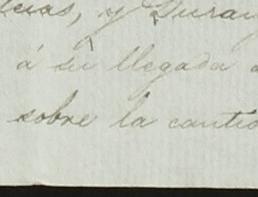 y Duran
á su llegada
sobre la cantid